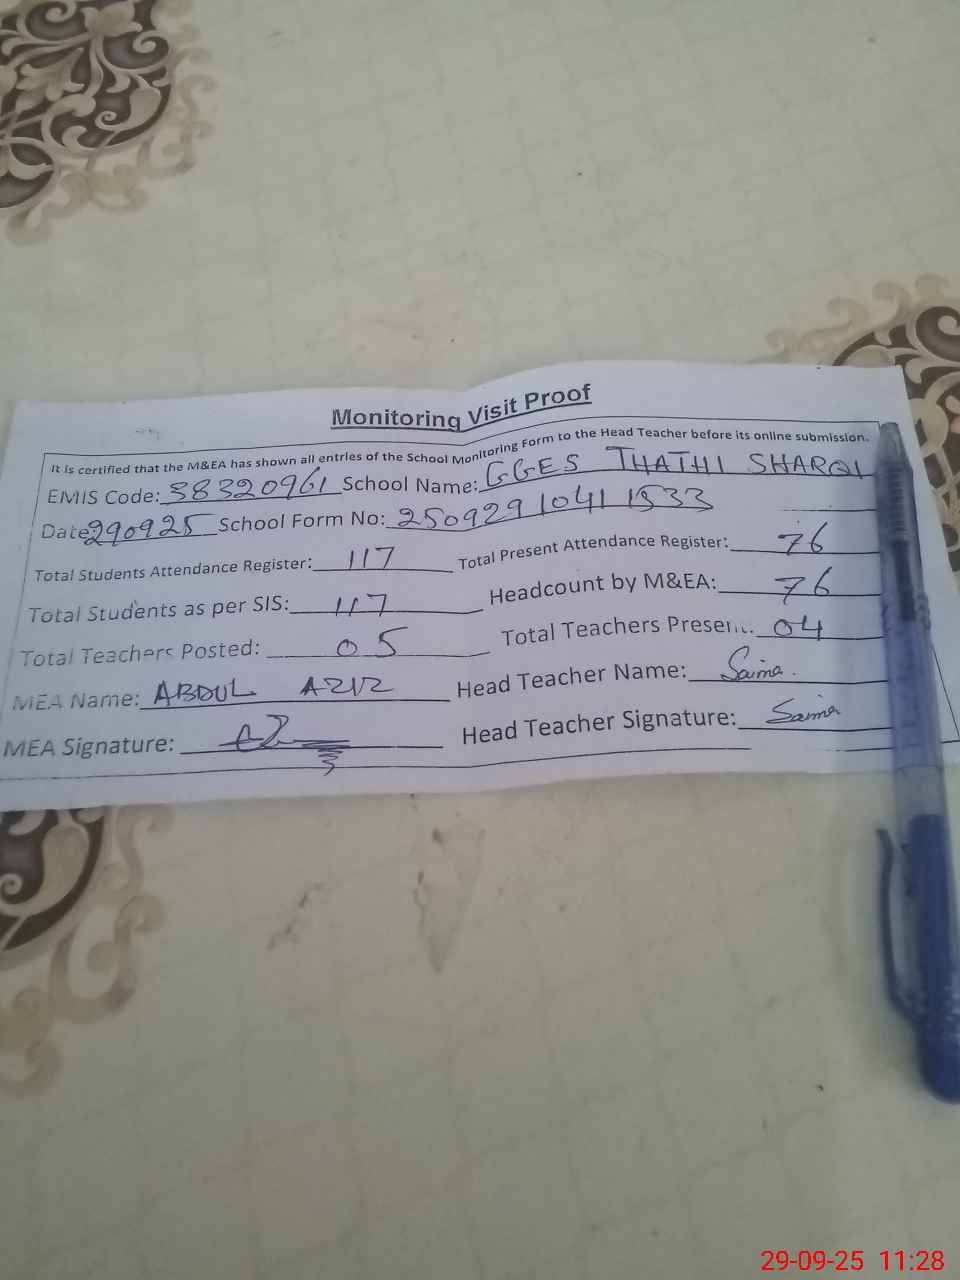 Monitoring Visit Proof
It is certified that the M&EA has shown all entries of the School Monitoring Form to the Head Teacher before its online submission.
EMIS Code: 38320961 School Name: GGES THATHI SHARQI
Date 290925 School Form No: 25092910411533
Total Students Attendance Register: 117 Total Present Attendance Register: 76
Total Students as per SIS: 117 Headcount by M&EA: 76
Total Teachers Posted: 05 Total Teachers Present: 04
MEA Name: ABDUL AZIZ Head Teacher Name: Saima.
MEA Signature: Head Teacher Signature: Saima
29-09-25 11:28